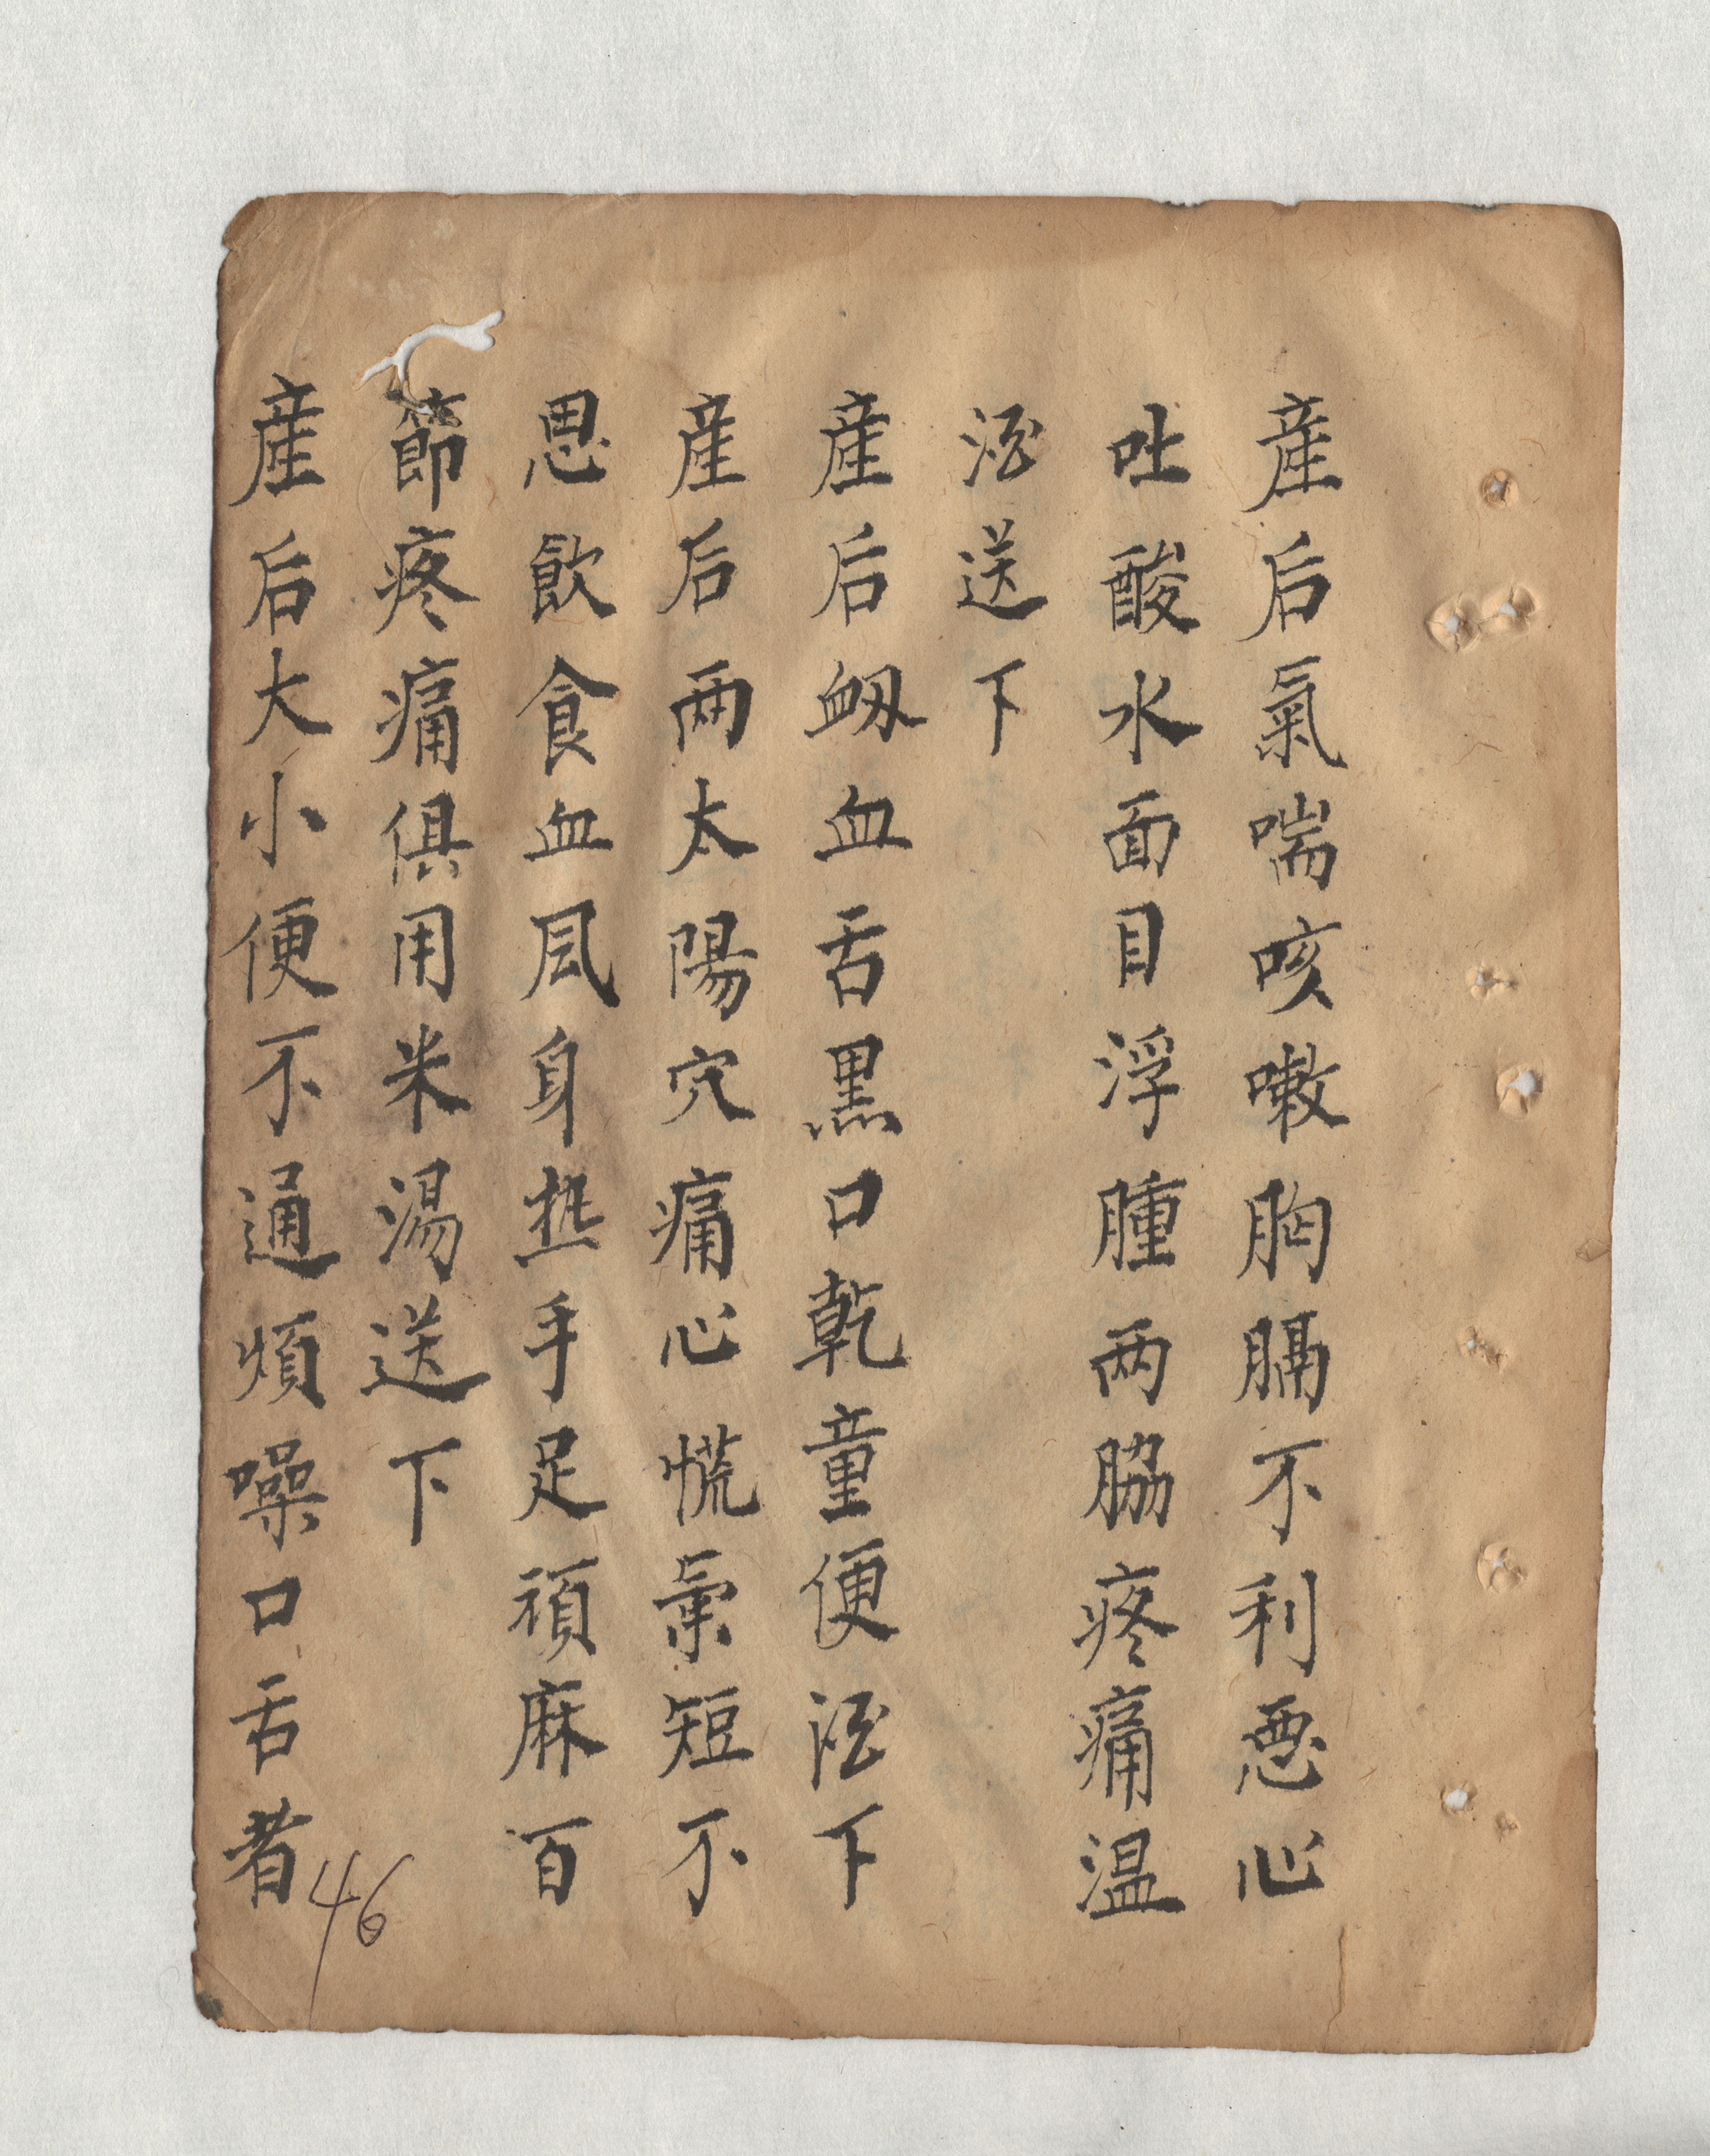 産后氣喘咳嗽胸膈不利惡心
吐酸水面目浮腫两脇疼痛温
酒送下
産后衂血舌黒口乾童便酒下
産后两太陽穴痛心慌氣短不
思飲食血風身热手足頑麻百
節疼痛俱用米湯送下
産后大小便不通煩噪口舌者
46